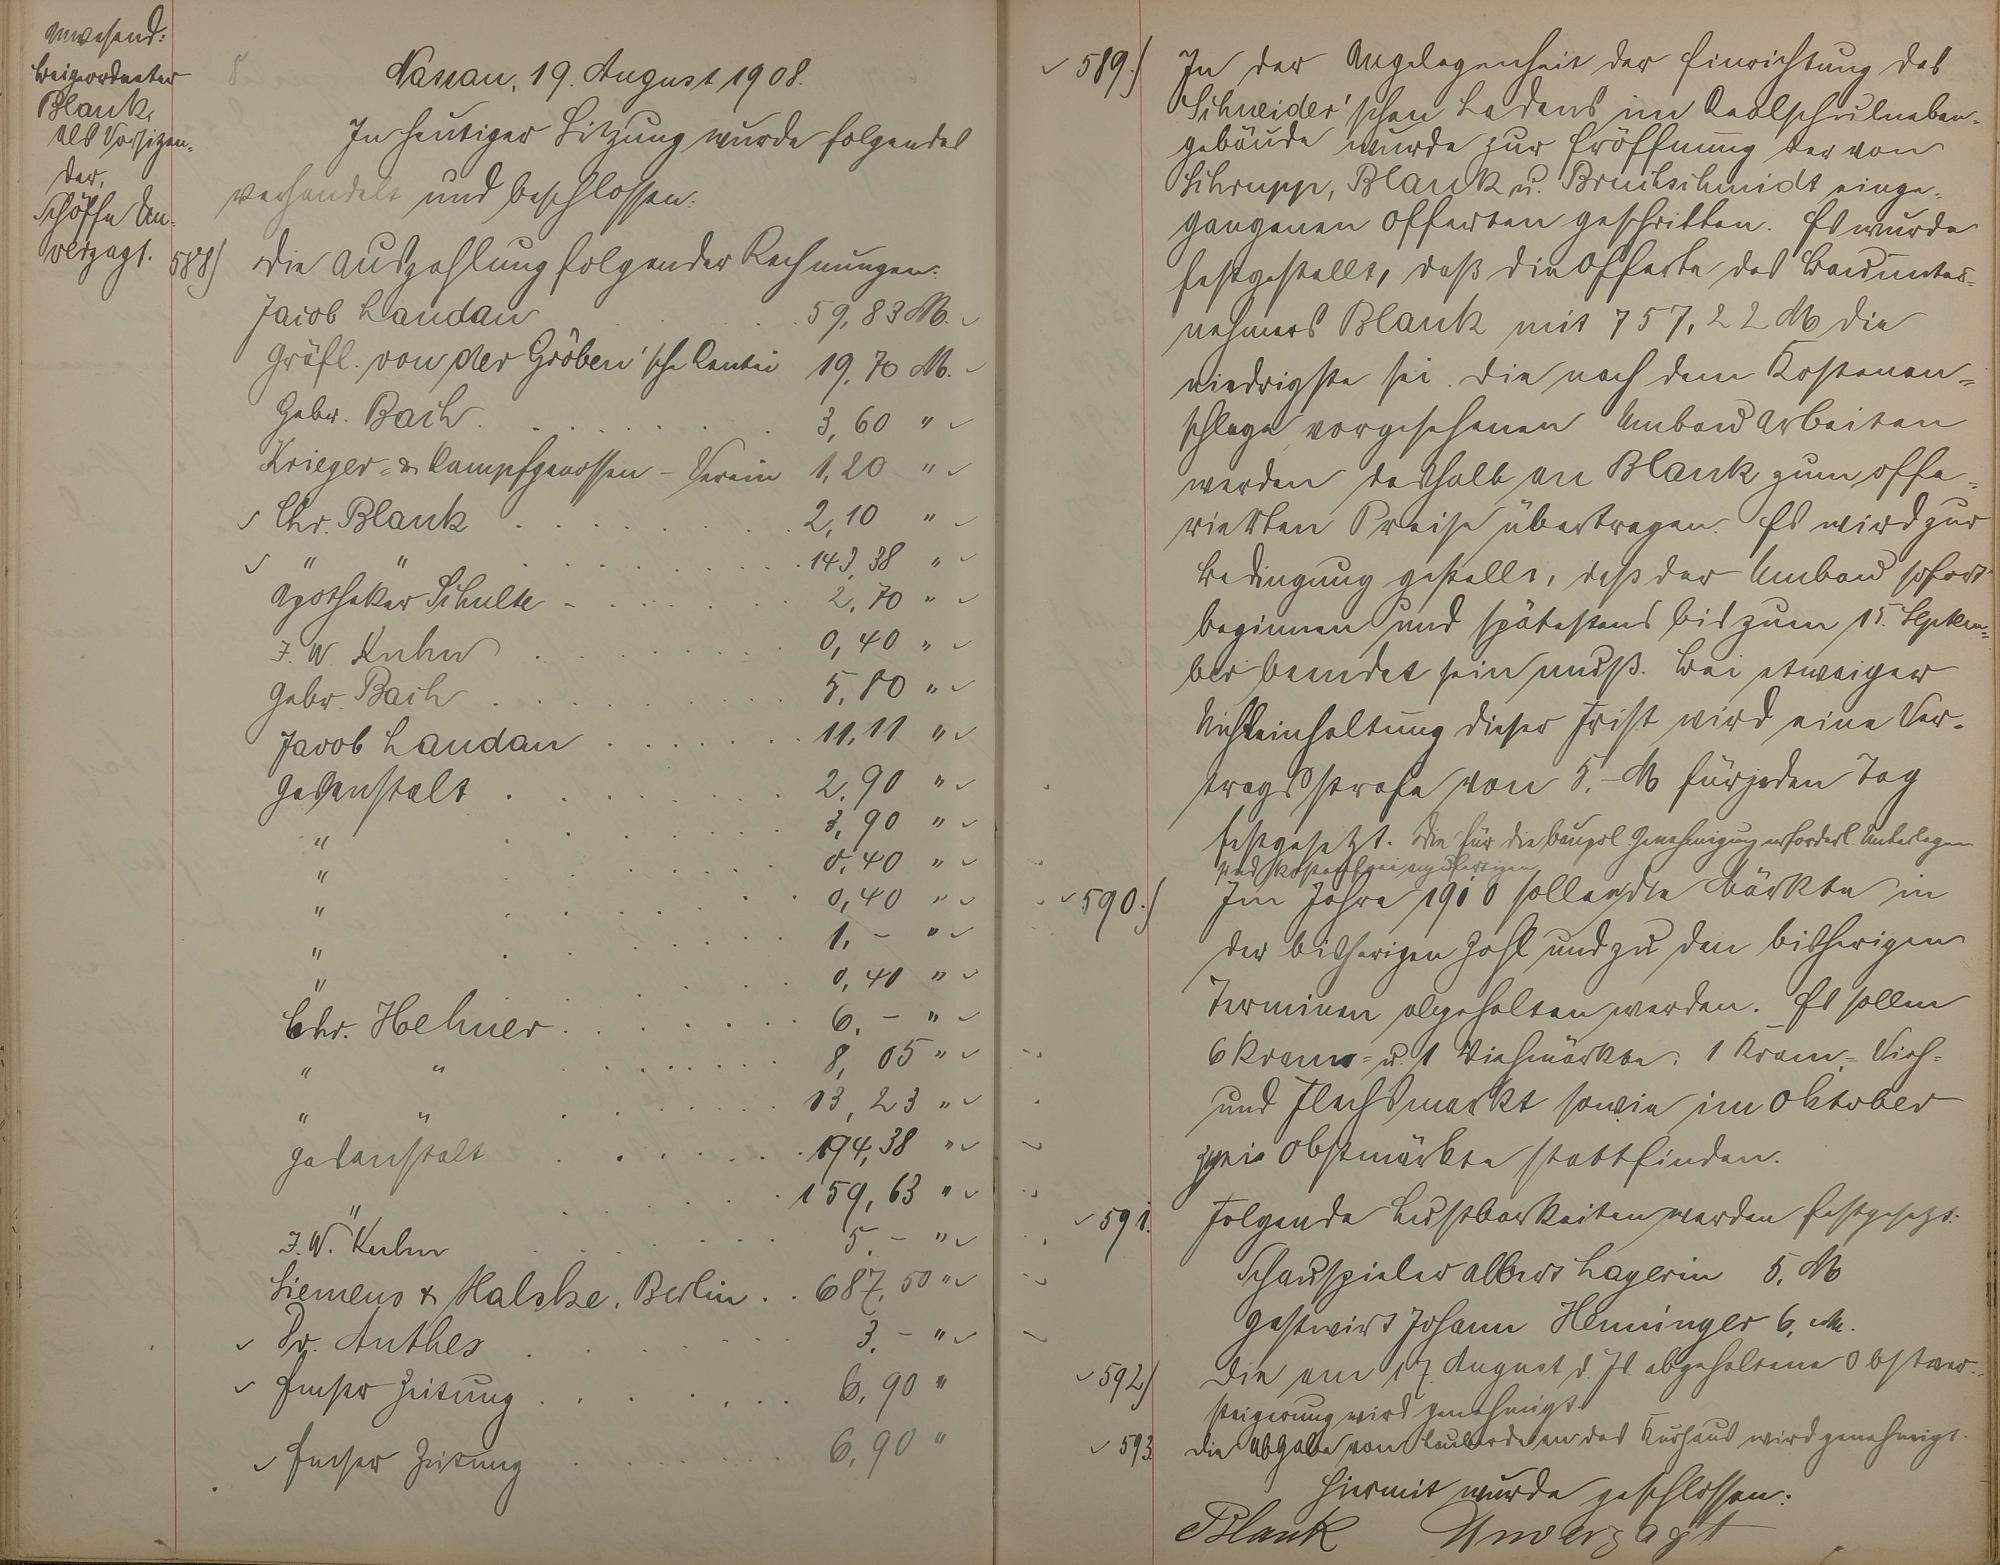 Anwesend:
Beigeordneter
Blank,
als Vorsitzen-
der,
Schöffe Un-
verzagt.
Nassau, 19. August 1908.
In heutiger Sitzung wurde folgendes
verhandelt und beschlossen:
588) Die Auszahlung folgender Rechnungen:
Jacob Landau 59,83 M.
Gräfl. von der Gröben'sche Rentei 19,70 M.
Gebr. Bach 3,60 "
Krieger- & Kampfgenossen-Verein 1,20 "
Chr. Blank 2,10 "
" " 143,38 "
Apotheker Schulte 2,70 "
J. W. Kuhn 0,40 "
Gebr. Bach 5,80 "
Jacob Landau 11,11 "
Gasanstalt 2,90 "
" 3,90 "
" 0,40 "
" 0,40 "
" 1,- "
" 0,40 "
Chr. Hehner 6,- "
" " 8,05 "
" " 13,23 "
Gasanstalt 194,38 "
" 159,63 "
J. W. Kuhn 5,- "
Siemens & Halske, Berlin 687,50 "
Dr. Anthes 3,- "
Emser Zeitung 6,90 "
Emser Zeitung 6,90 "
589.) In der Angelegenheit der Einrichtung des
Schneider'schen Ladens im Realschulneben-
gebäude wurde zur Eröffnung der von
Schrupp, Blank u. Bruchschmidt einge-
gangenen Offerten geschritten. Es wurde
festgestellt, daß die Offerte des Bauunter-
nehmers Blank mit 757,22 M die
niedrigste sei. Die nach dem Kostenan-
schlage vorgesehenen Umbau Arbeiten
werden deshalb an Blank zum offe-
rierten Preise übertragen. Es wird zur
Bedingung gestellt, daß der Umbau sofort
beginnen und spätestens bis zum 15. Septem-
ber beendet sein muß. Bei etwaiger
Nichteinhaltung dieser Frist wird eine Ver-
tragsstrafe von 5,- M für jeden Tag
festgesetzt. Die für die baupol. Genehmigung erforderl. Unterlagen
sind kostenfrei anzufertigen
590.) Im Jahre 1910 sollen die Märkte in
der bisherigen Zahl und zu den bisherigen
Terminen abgehalten werden. Es sollen
6 Kram- u. 1 Viehmärkte, 1 Kram-, Vieh-
und Flachsmarkt sowie im Oktober
zwei Obstmärkte stattfinden.
591. Folgende Lustbarkeiten werden festgesetzt:
Schauspieler Albers Layerin 5, M
Gastwirt Johann Henninger 6, M.
592) Die am 17. August d. Js. abgehaltene Obstver-
steigerung wird genehmigt.
593 Die Abgabe von an das Kurhaus wird genehmigt.
Hiermit wurde geschlossen:
Blank Unverzagt